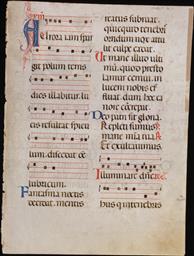 Aurora iam spar
git polum terris
dies illabitur lu
cis resultat spicu
lum discedat oē
lubricum.
Fantasma noctis
decidat mentis
reatus subruat
quicquid tenebris
orridum nox attu
lit culpe cadat.
Ut mane illud ulti
mū quod presto
lamur cernui in
lucem nobis ef
fluat dum hoc ca
nore concrepat.
Deo patri sit gloria.
Repleti sumus
mane mīa tua.
Et exultauimus
Illuminare
bus qui in tenebris